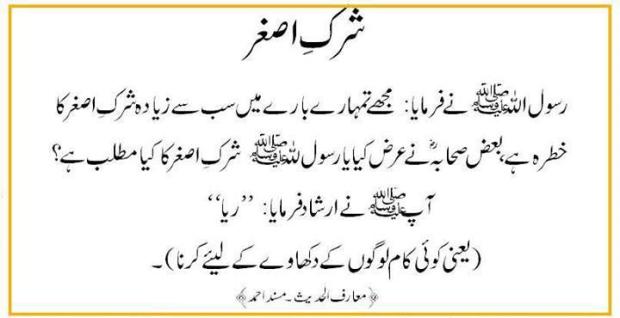 شرکِ اصغر
رسول اللہ ﷺ نے فرمایا: مجھے تمہارے بارے میں سب سے زیادہ شرکِ اصغر کا
خطرہ ہے، بعض صحابہؓ نے عرض کیا یا رسول للہ ﷺ شرکِ اصغر کا کیا مطلب ہے؟
آپ ﷺ نے ارشاد فرمایا: ’’ریا‘‘
(یعنی کوئی کام لوگوں کے دکھاوے کے لیئے کرنا)۔
﴿معارف الحدیث۔ مسند احمد﴾